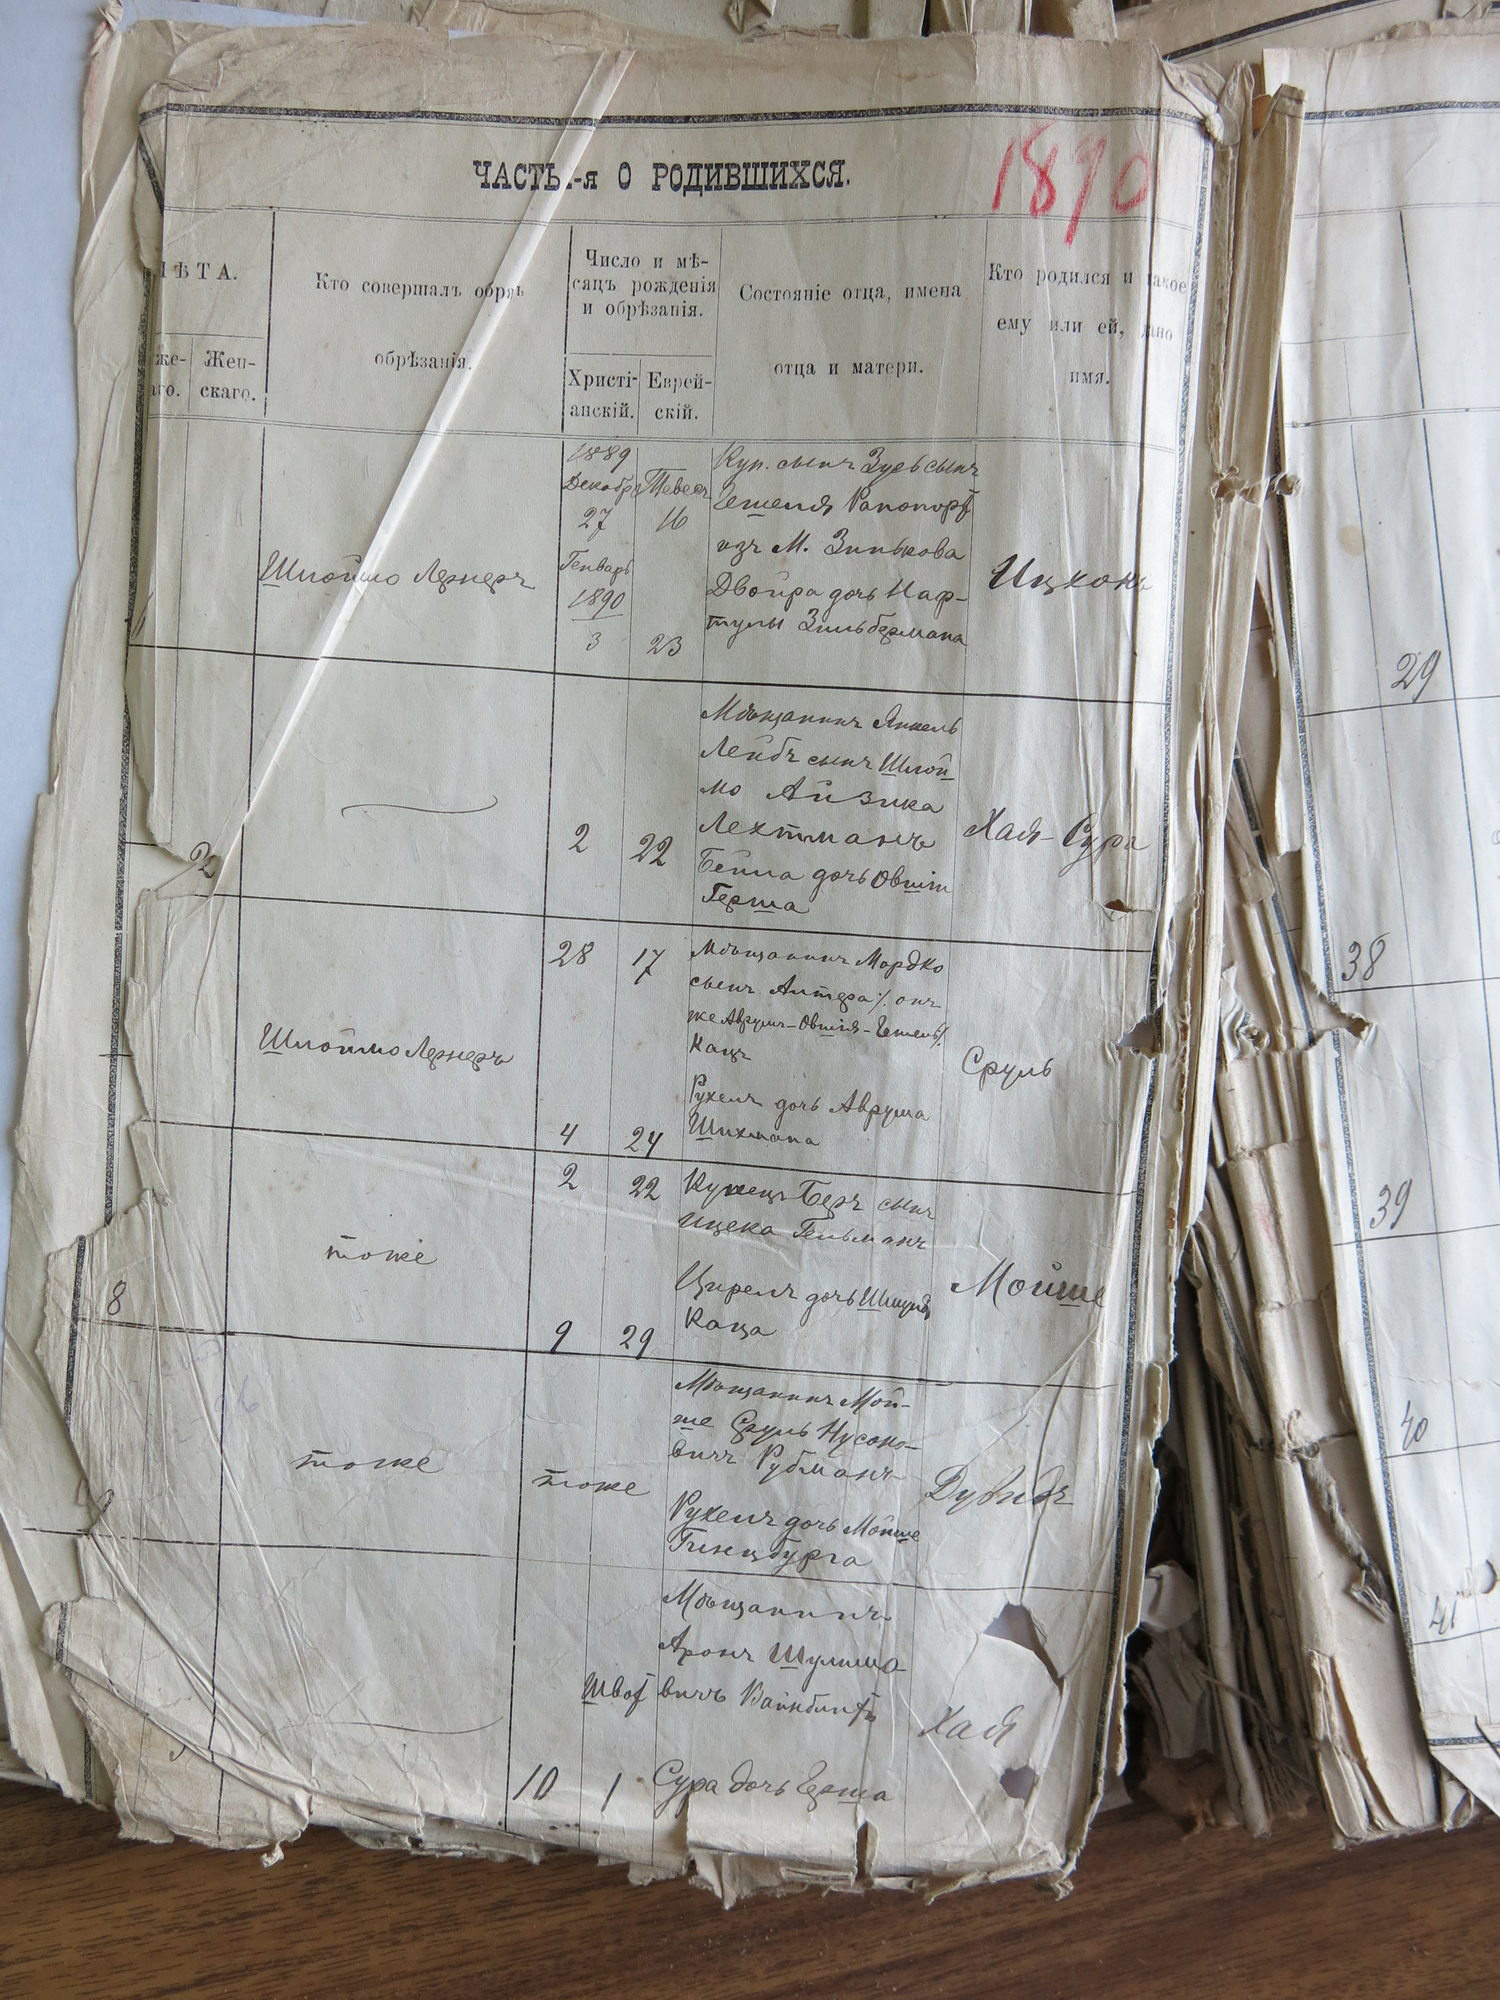 1890
ЧАСТЬ -я О РОДИВШИХСЯ.
ЛѢТА.
же-
го.
Жен-
скаго.
Кто совершалъ обрядъ
обрѣзанія.
Число и мѣ-
сяцъ рожденія
и обрѣзанія.
Христі-
анскій.
Еврей-
скій.
Состояніе отца, имена
отца и матери.
Кто родился и какое
ему или ей, дано
имя.
Шлоймо Лернеръ
1889
Декабрь
27
Генварь
1890
3
Тевесъ
16
23
Куп. сынъ Зусь сынъ
Гешеля Рапопортъ
изъ М. Зинькова
Двойра дочь Наф-
тулы Зильбермана
Ицхокъ
2
2
22
Мѣщанинъ Янкель
Лейбъ сынъ Шлой-
мо Айзика
Лехтманъ
Бейла дочь Овшія
Герша
Хая-Сура
Шлоймо Лернеръ
28
17
4
24
Мѣщанинъ Мордко
сынъ Алтера /. онъ
же Аврумъ-Овшія-Гешель/.
Кацъ
Рухель дочь Аврума
Шихмана
Сруль
8
тоже
2
22
9
29
Купецъ Беръ сынъ
Ицека Гельманъ
Цирелъ дочь Шмуля
Каца
Мойше
тоже
тоже
Мѣщанинъ Мой-
ше Сруль Нусоно-
вичъ Рубманъ
Рухель дочь Мойше
Гинцбурга
Дувидъ
Шват
10
1
Мѣщанинъ
Аронъ Шулимо-
вичъ Вайнблитъ
Сура дочь Герша
Хая
29
38
39
40
41